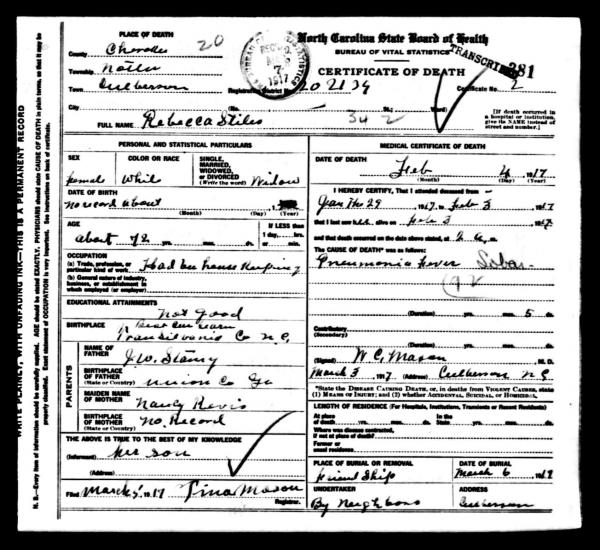 PLACE OF DEATH
County Cherokee
20
Township Notla
Town Culberson
City
BUREAU OF VITAL STATISTICS
1917
North Carolina State Board of Health
BUREAU OF VITAL STATISTICS
TRANSCRIBED
CERTIFICATE OF DEATH
281
Registration District No.
Certificate No. 2
(No. St.; Ward)
[If death occurred in a hospital or institution, give its NAME instead of street and number.]
FULL NAME Rebecca Stiles
342
PERSONAL AND STATISTICAL PARTICULARS
SEX
female
COLOR OR RACE
White
SINGLE, MARRIED, WIDOWED, OR DIVORCED
(Write the word) Widow
DATE OF BIRTH
no record about
(Month) (Day)
AGE
about 72 yrs. mos. ds.
IF LESS than 1 day, hrs. or min.
OCCUPATION
(a) Trade, profession, or particular kind of work
Had bee house Keeping
(b) General nature of industry, business, or establishment in which employed (or employer)
EDUCATIONAL ATTAINMENTS
Not Good
BIRTHPLACE
Transilvania Co N.C.
PARENTS
NAME OF FATHER
J.W.
BIRTHPLACE OF FATHER
(State or Country)
union Co Ga
MAIDEN NAME OF MOTHER
Nancy Revis
BIRTHPLACE OF MOTHER
(State or Country)
no. Record
THE ABOVE IS TRUE TO THE BEST OF MY KNOWLEDGE
(Informant) her son
(Address)
Filed March 5, 1917 Tina Mason
Registrar.
MEDICAL CERTIFICATE OF DEATH
DATE OF DEATH
Feb 4 1917
(Month) (Day) (Year)
I HEREBY CERTIFY, That I attended deceased from
29 1917 to Feb 3 1917
that I last saw h.. alive on Feb 3 1917
and that death occurred on the date stated above, at 2 a. m.
The CAUSE OF DEATH* was as follows:
Pneumonia fever Lobar
92
(Duration) yrs. mos. 5 ds.
Contributory
(Secondary)
(Duration) yrs. mos. ds.
(Signed) W C, Mason M.D.
March 3, 1917 (Address) Culberson N C
*State the DISEASE CAUSING DEATH, or, in deaths from VIOLENT CAUSES, state (1) MEANS OF INJURY; and (2) whether ACCIDENTAL, SUICIDAL, or HOMICIDAL.
LENGTH OF RESIDENCE (For Hospitals, Institutions, Transients or Recent Residents)
At place of death yrs. mos. ds. In the State yrs. mos. ds.
Where was disease contracted, if not at place of death?
Former or usual residence
PLACE OF BURIAL OR REMOVAL
Friend Ship
DATE OF BURIAL
March 6, 1917
UNDERTAKER
By Neighbors
ADDRESS
Culberson
WRITE PLAINLY, WITH UNFADING INK—THIS IS A PERMANENT RECORD
N. B.—Every item of information should be carefully supplied. AGE should be stated EXACTLY. PHYSICIANS should state CAUSE OF DEATH in plain terms, so that it may be properly classified. Exact statement of OCCUPATION is very important. See instructions on back of certificate.